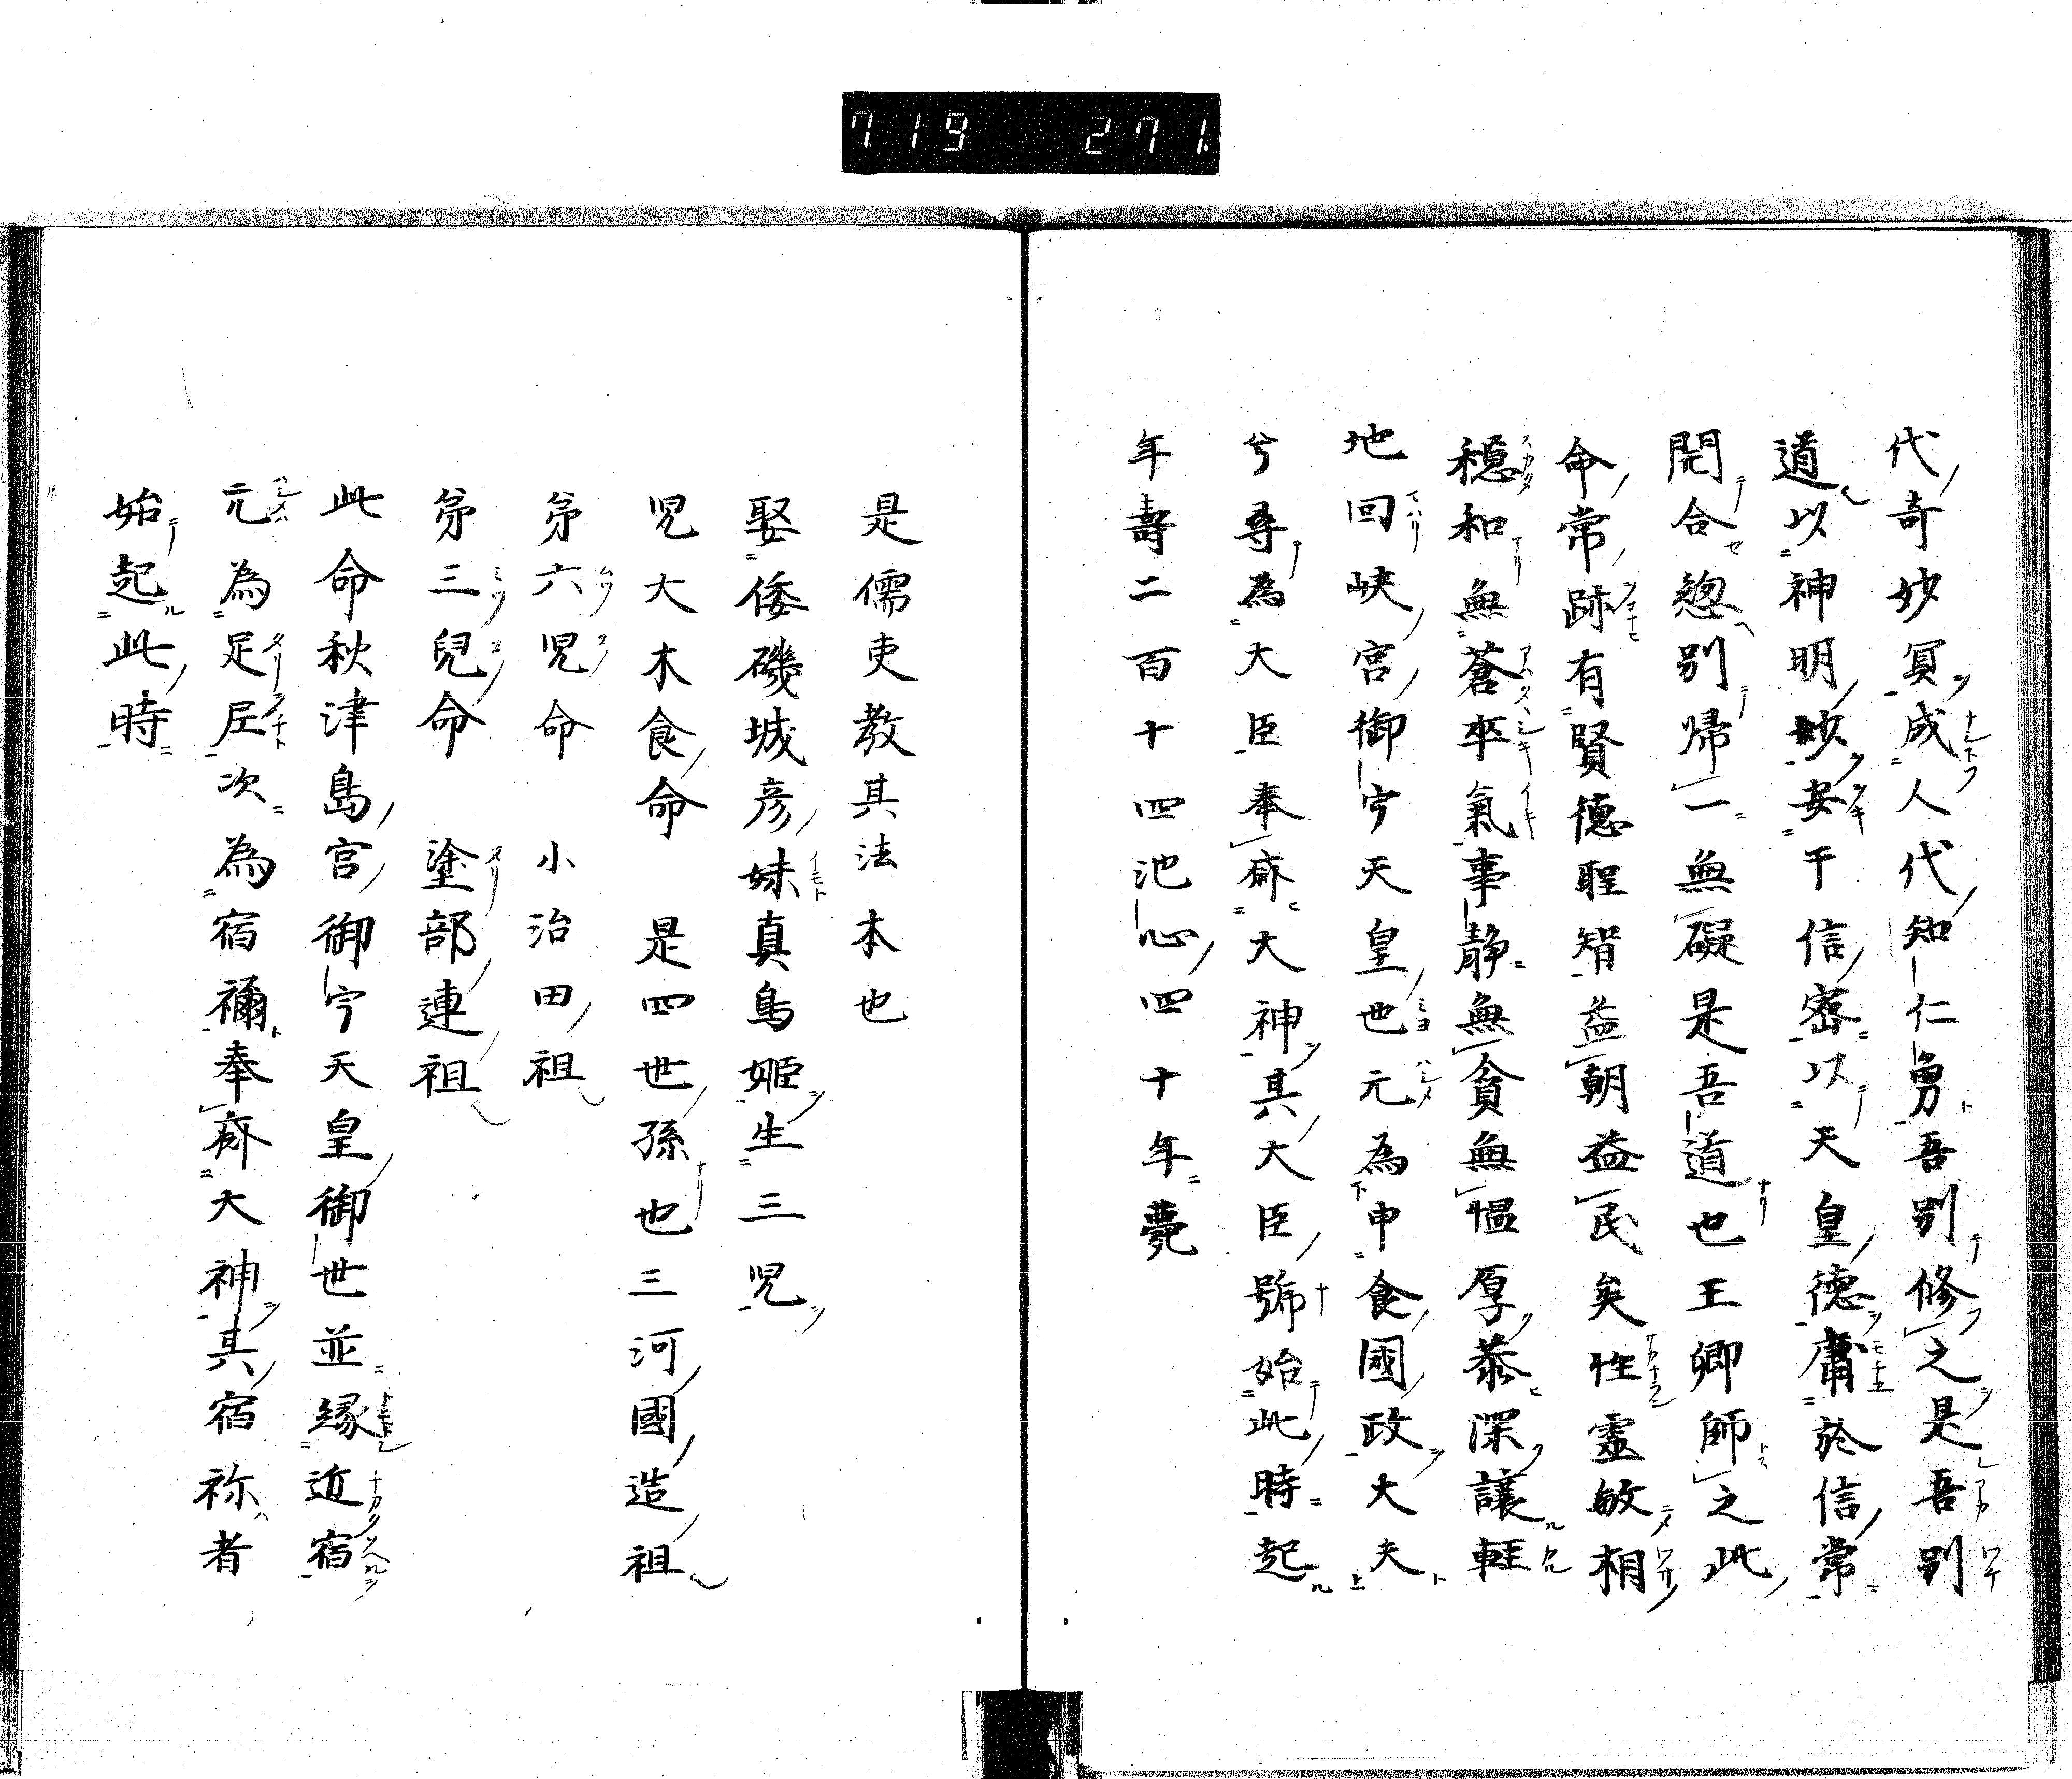 719 271.
代奇妙冥成人代知仁勇吾別修之是吾別
道以神明妙安千信密以天皇德庸於信常
開合惣別歸一無礙是吾道也王卿師之此
命常跡有賢德聖智益朝益民矣性靈敏相
穩和無蒼卒氣事靜無貪無慍厚恭深讓輕
地回峽宮御宁天皇也世元為申食國政大夫
兮尋為大臣奉齋大神其大臣號始此時起
年壽二百十四池心四十年薨
是儒吏教其法本也
娶倭磯城彦妹真鳥姬生三児
児大木食命 是四世孫也三河國造祖
第六児命 小治田祖
第三兒命 塗部連祖
此命秋津島宮御宁天皇御世並縁近宿
元為足尼次為宿禰奉齋大神其宿祢者
始起此時